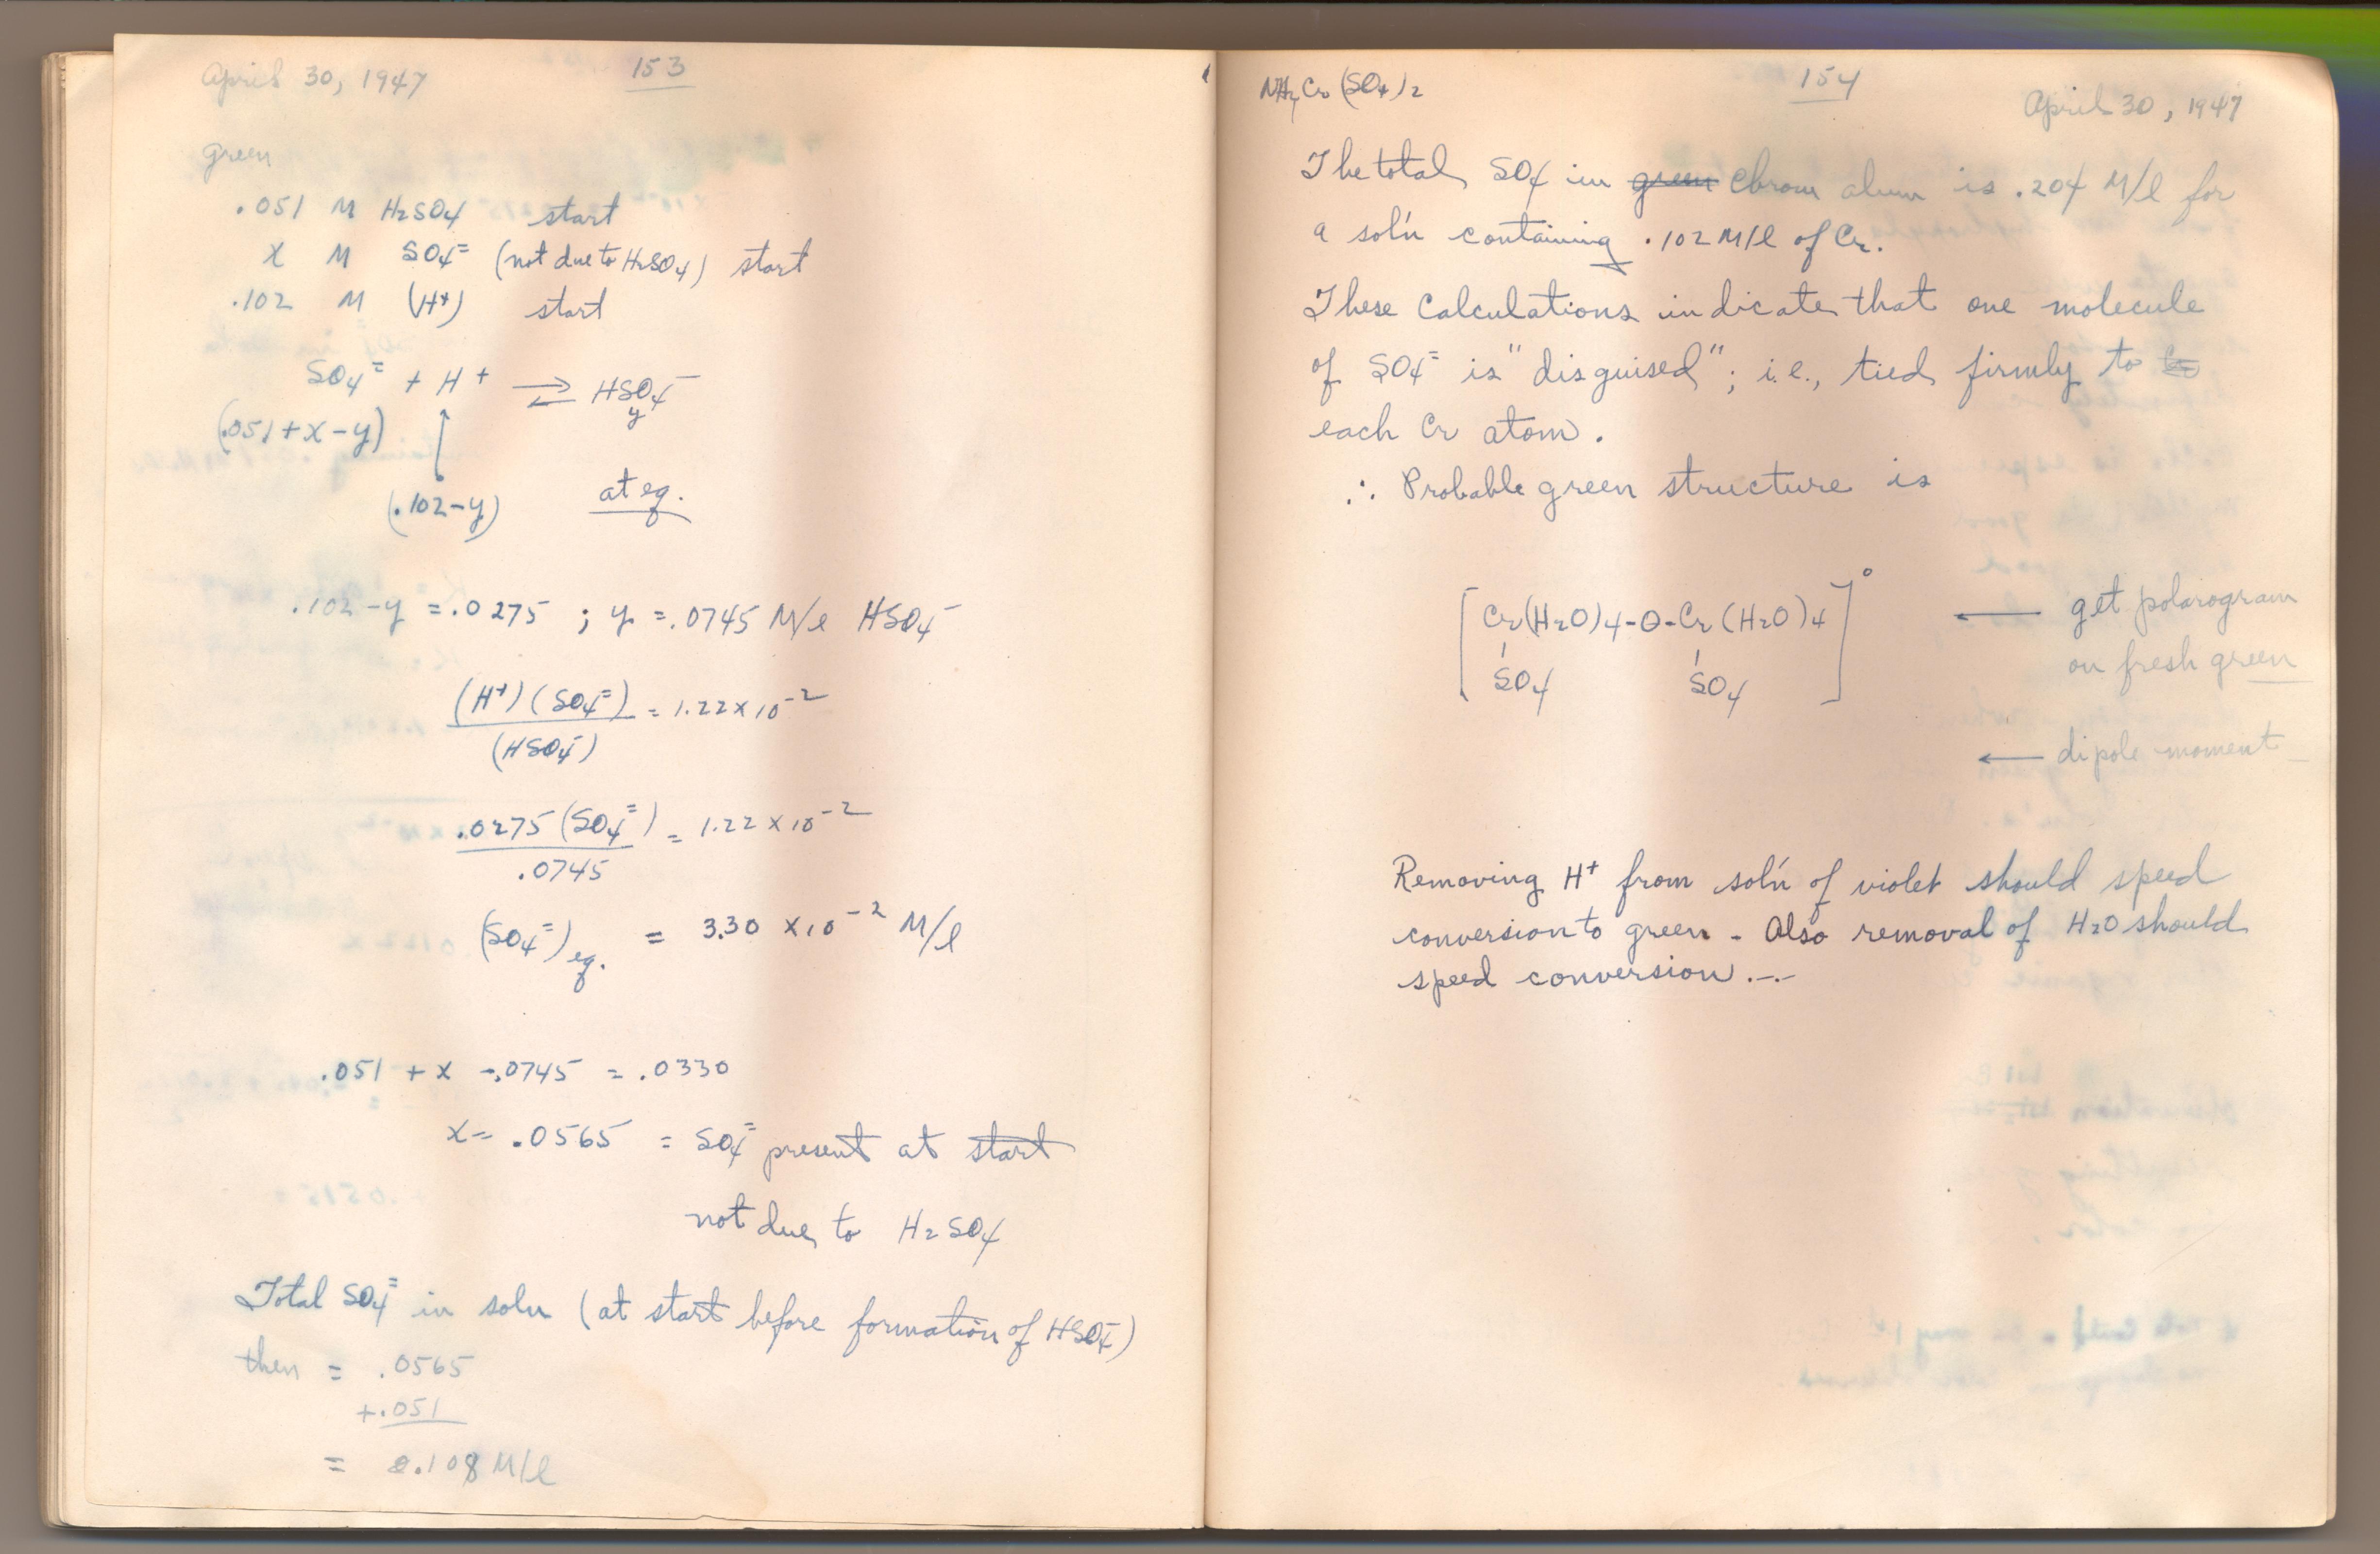 April 30, 1947
153
green
.051 M H2SO4 start
x M SO4= (not due to H2SO4) start
.102 M (H+) start
SO4= + H+ ⇌ HSO4-
y
(.051+x-y)
(.102-y) at eq.
.102-y = .0275 ; y = .0745 M/l HSO4-
(H+)(SO4=) = 1.22 x 10-2
(HSO4-)
.0275 (SO4=) = 1.22 x 10-2
.0745
(SO4=)eq. = 3.30 x 10-2 M/l
.051 + x -.0745 = .0330
x = .0565 = SO4= present at start
not due to H2SO4
Total SO4= in soln (at start before formation of HSO4-)
then = .0565
+.051
= 0.108 M/l
NH4Cr(SO4)2
154
April 30, 1947
The total SO4 in green Chrom alum is .204 M/l for
a sol'n containing .102 M/l of Cr.
These Calculations indicate that one molecule
of SO4= is "disguised"; i.e., tied firmly to
each Cr atom.
∴ Probable green structure is
[Cr(H2O)4-O-Cr(H2O)4]°
SO4 SO4
← get polarogram
on fresh green
← dipole moment
Removing H+ from sol'n of violet should speed
conversion to green - Also removal of H2O should
speed conversion.-.-